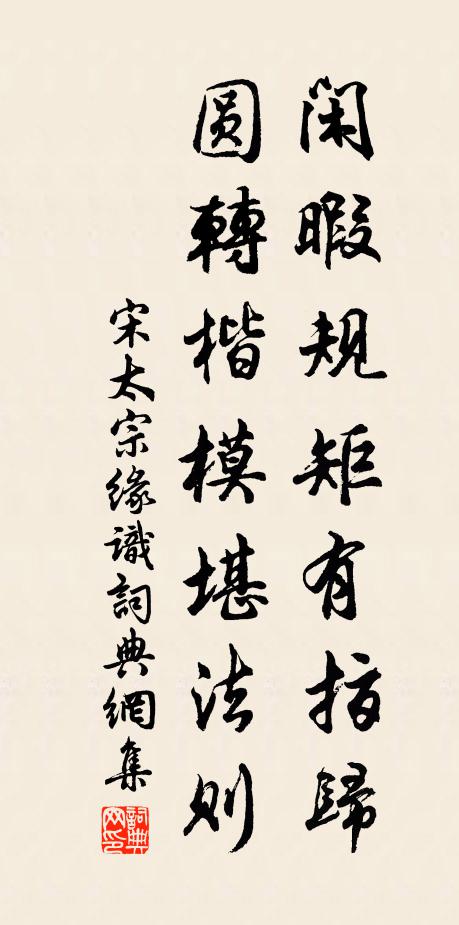 閑暇規矩有指歸
圆轉楷模堪法則
宋太宗緣識詞典網集
詞典网印